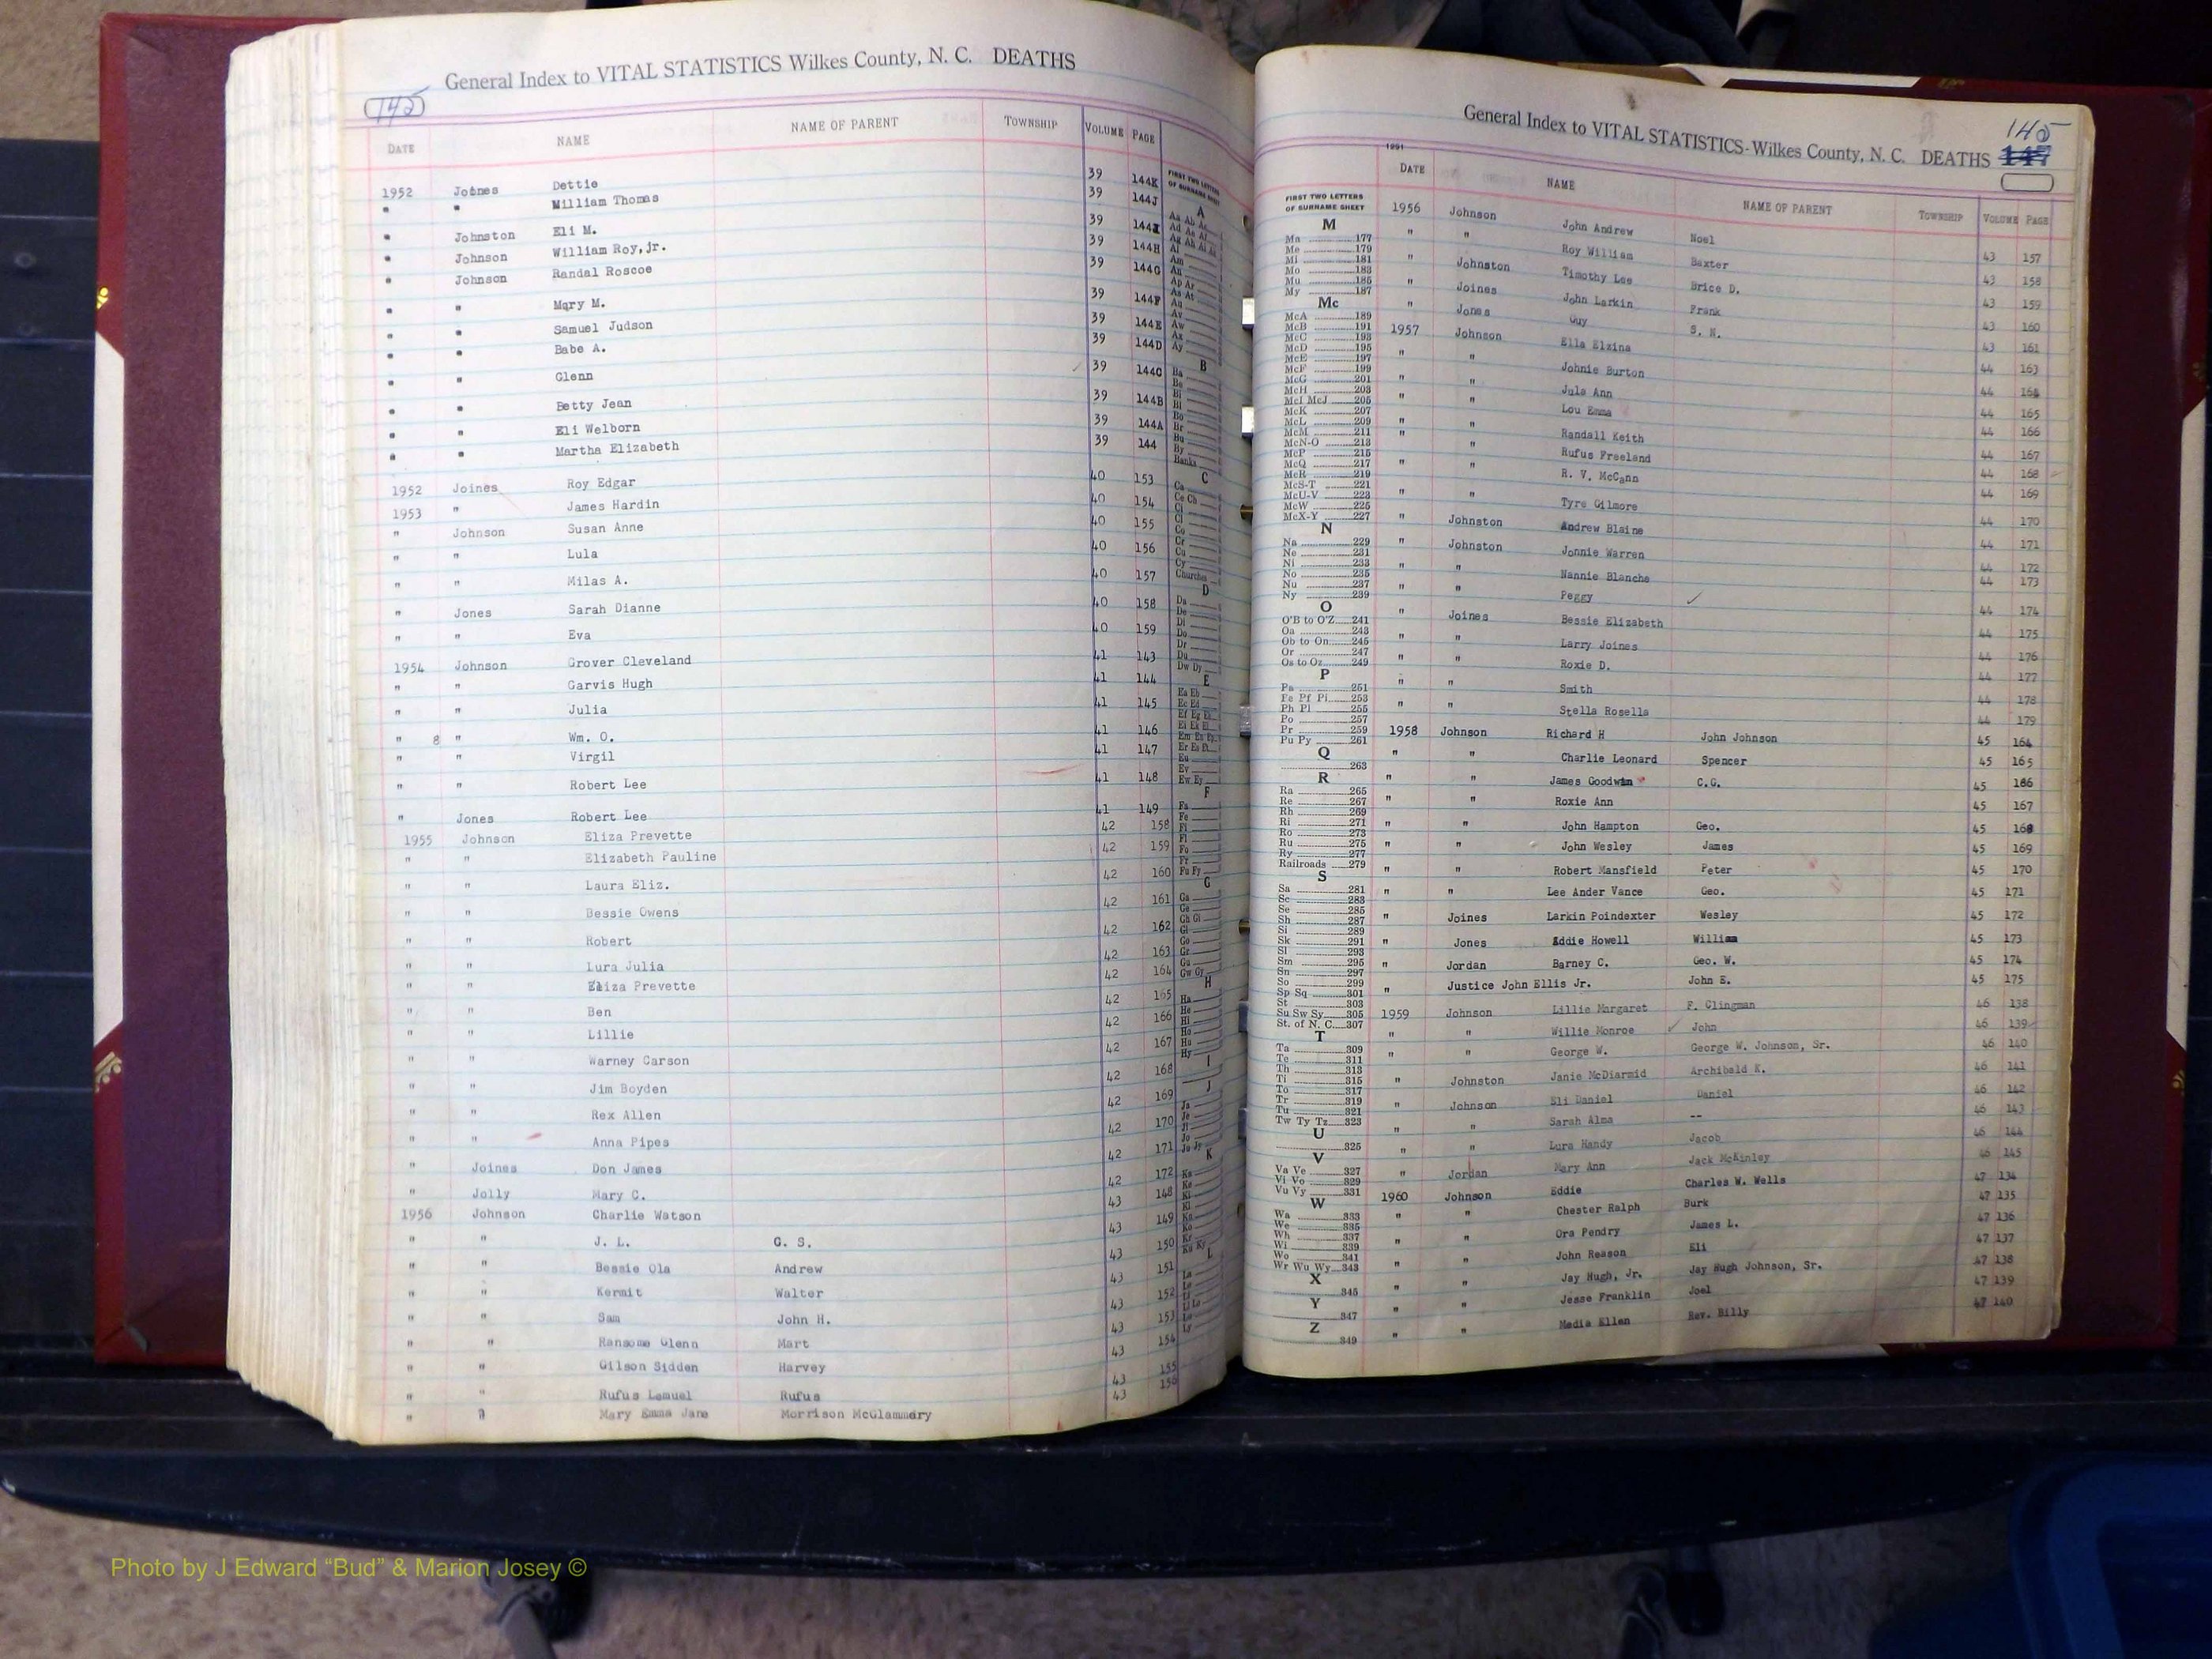 General Index to VITAL STATISTICS Wilkes County, N. C. DEATHS
DATE NAME NAME OF PARENT TOWNSHIP VOLUME PAGE
1952 Joines Dettie 39 144K
" " William Thomas 39 144J
" Johnston Eli M. 39 144I
" Johnson William Roy, jr. 39 144H
" Johnson Randal Roscoe 39 144G
" " Mary M. 39 144F
" " Samuel Judson 39 144E
" " Babe A. 39 144D
" " Glenn 39 144C
" " Betty Jean 39 144B
" " Eli Welborn 39 144A
" " Martha Elizabeth 39 144
1952 Joines Roy Edgar 40 153
1953 " James Hardin 40 154
" Johnson Susan Anne 40 155
" " Lula 40 156
" " Milas A. 40 157
" Jones Sarah Dianne 40 158
" " Eva 40 159
1954 Johnson Grover Cleveland 41 143
" " Garvis Hugh 41 144
" " Julia 41 145
" 8 " Wm. O. 41 146
" " Virgil 41 147
" " Robert Lee 41 148
" Jones Robert Lee 41 149
1955 Johnson Eliza Prevette 42 158
" " Elizabeth Pauline 42 159
" " Laura Eliz. 42 160
" " Bessie Owens 42 161
" " Robert 42 162
" " Lura Julia 42 163
" " Eliza Prevette 42 164
" " Ben 42 165
" " Lillie 42 166
" " Warney Carson 42 167
" " Jim Boyden 42 168
" " Rex Allen 42 169
" " Anna Pipes 42 170
" Joines Don James 42 171
" Jolly Mary C. 42 172
1956 Johnson Charlie Watson 43 148
" " J. L. G. S. 43 149
" " Bessie Ola Andrew 43 150
" " Kermit Walter 43 151
" " Sam John H. 43 152
" " Ransome Glenn Mart 43 153
" " Gilson Sidden Harvey 43 154
" " Rufus Lemuel Rufus 43 155
" " Mary Emma Jane Morrison McGlammery 43 156
General Index to VITAL STATISTICS-Wilkes County, N. C. DEATHS
145
DATE NAME NAME OF PARENT TOWNSHIP VOLUME PAGE
1956 Johnson John Andrew Noel 43 157
" " Roy William Baxter 43 158
" Johnston Timothy Lee Brice D. 43 159
" Joines John Larkin Frank 43 160
" Jones Guy S. N. 43 161
1957 Johnson Ella Elzina 44 163
" " Johnie Burton 44 164
" " Jula Ann 44 165
" " Lou Emma 44 166
" " Randall Keith 44 167
" " Rufus Freeland 44 168
" " R. V. McCann 44 169
" " Tyre Gilmore 44 170
" Johnston Andrew Blaine 44 171
" Johnston Jonnie Warren 44 172
" " Nannie Blanche 44 173
" " Peggy 44 174
" Joines Bessie Elizabeth 44 175
" " Larry Joines 44 176
" " Roxie D. 44 177
" " Smith 44 178
" " Stella Rosella 44 179
1958 Johnson Richard H John Johnson 45 164
" " Charlie Leonard Spencer 45 165
" " James Goodwin C.G. 45 166
" " Roxie Ann 45 167
" " John Hampton Geo. 45 168
" " John Wesley James 45 169
" " Robert Mansfield Peter 45 170
" " Lee Ander Vance Geo. 45 171
" Joines Larkin Poindexter Wesley 45 172
" Jones Addie Howell William 45 173
" Jordan Barney C. Geo. W. 45 174
" Justice John Ellis Jr. John E. 45 175
1959 Johnson Lillie Margaret F. Clingman 46 138
" " Willie Monroe John 46 139
" " George W. George W. Johnson, Sr. 46 140
" Johnston Janie McDiarmid Archibald K. 46 141
" Johnson Eli Daniel Daniel 46 142
" " Sarah Alma -- 46 143
" " Lura Handy Jacob 46 144
" Jordan Mary Ann Jack McKinley 46 145
1960 Johnson Eddie Charles W. Wells 47 134
" " Chester Ralph Burk 47 135
" " Ora Pendry James L. 47 136
" " John Reason Eli 47 137
" " Jay Hugh, Jr. Jay Hugh Johnson, Sr. 47 138
" " Jesse Franklin Joel 47 139
" " Media Ellen Rev. Billy 47 140
FIRST TWO LETTERS
OF SURNAME SHEET
M
Ma 177
Me 179
Mi 181
Mo 183
Mu 185
My 187
Mc
McA 189
McB 191
McC 193
McD 195
McE 197
McF 199
McG 201
McH 203
McI McJ 205
McK 207
McL 209
McM 211
McN-O 213
McP 215
McQ 217
McR 219
McS-T 221
McU-V 223
McW 225
McX-Y 227
N
Na 229
Ne 231
Ni 233
No 235
Nu 237
Ny 239
O
O'B to O'Z 241
Oa 243
Ob to On 245
Or 247
Os to Oz 249
P
Pa 251
Pe Pf Pi 253
Ph Pl 255
Po 257
Pr 259
Pu Py 261
Q
263
R
Ra 265
Re 267
Rh 269
Ri 271
Ro 273
Ru 275
Ry 277
Railroads 279
S
Sa 281
Sc 283
Se 285
Sh 287
Si 289
Sk 291
Sl 293
Sm 295
Sn 297
So 299
Sp Sq 301
St 303
Su Sw Sy 305
St. of N. C. 307
T
Ta 309
Te 311
Th 313
Ti 315
To 317
Tr 319
Tu 321
Tw Ty Tz 323
U
325
V
Va Ve 327
Vi Vo 329
Vu Vy 331
W
Wa 333
We 335
Wh 337
Wi 339
Wo 341
Wr Wu Wy 343
X
345
Y
347
Z
349
Photo by J Edward “Bud” & Marion Josey ©